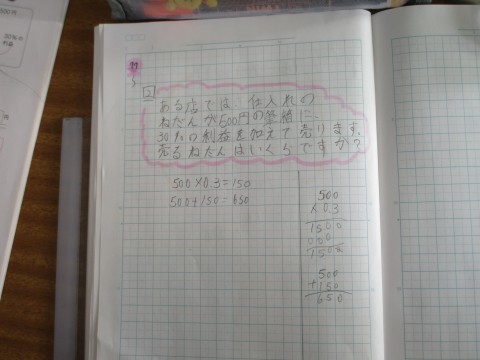 2
ある店では、仕入れの
ねだんが500円の筆箱に、
30%の利益を加えて売ります。
売るねだんはいくらですか?
500×0.3=150
500+150=650
500
×0.3
1500
000
150.0
500
+150
650